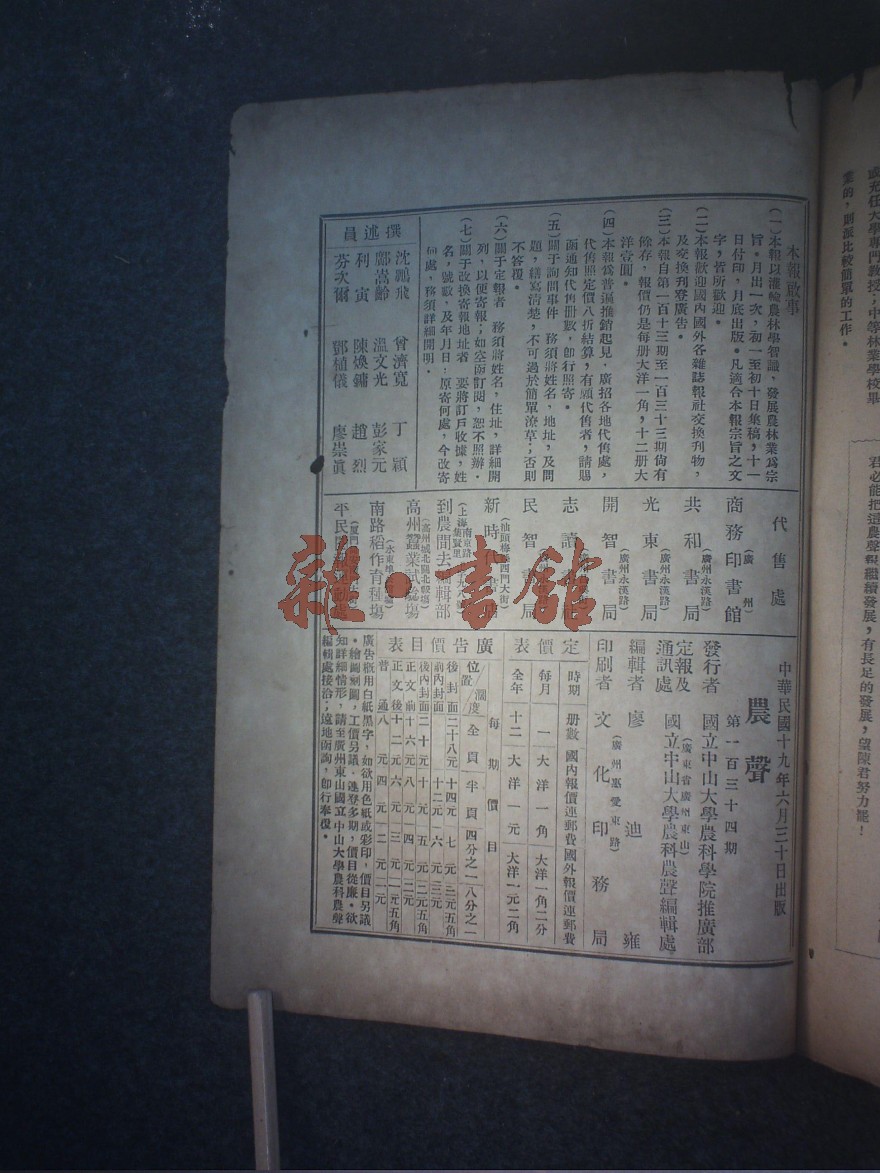 本報啟事
(一)本報以灌輸農林學智識,發展農林業為宗
旨。月出一次,初一至初十日集稿,十一
日付印,月底出版。凡適合本報宗旨之文
字,皆所歡迎。
(二)本報歡迎國內國外各雜誌報社交換刊物,
及交換刊登廣告。
(三)本報自第一百十三期至一百三十三期尙有
餘存,報價仍是每册大洋一角,十二册大
洋壹圓。
(四)本報爲普遍推銷起見,廣招各地代售處,
代售照定價八折結算,有願代售者,請賜
函通知代售册數,卽行照寄。
(五)關于詢問事件 務須將姓名,地址,及問
題,繕寫清楚,不可過於簡單潦草;否則
不答覆。
(六)關于定報者 務須將姓名,住址,詳細開
列,以便寄報;如空函訂閱,恕不照辦。
(七)關于改換寄報地址者 要將訂戶收據,姓
名,號數,及年月日:原寄何處,今改寄
何處,務須詳細開明。
撰述員
沈鵬飛 曾濟寬 丁穎
鄺嵩齡 溫文光 彭家元
利寅 陳煥鏞 趙烈
芬次爾 鄧植儀 廖崇眞
代售處
商務印書館(廣州)
共和書局(廣州永漢路)
光東書局(廣州永漢路)
開智書局(廣州永漢路)
志讀書
民智書局
新時書
到農間去編輯部
高州蠶業試驗場
南路稻作育種場
平民
中華民國十九年六月三十日出版
農聲
第一百三十四期
發行者 國立中山大學農科學院推廣部
(廣東省廣州東山)
定報及
通訊處 國立中山大學農科農聲編輯處
編輯者 廖迪雍
(廣州惠愛東路)
印刷者 文化印務局
定價表
時期 册數 國內報價連郵費 國外報價連郵費
每月 一 大洋一角 大洋一角二分
全年 十二 大洋一元 大洋一元二角
廣告價目表
每期價目
位置/濶度 全頁 半頁 四分之一 八分之一
後封面 二十八元 十四元 七元 三元五角
前內封面 十二元 六元 三元
後內封面 二十元 十元 五元 二元五角
正文前 十六元 八元 四元 二元
正文後 十二元 六元 三元 一元五角
普通 八元 四元 二元 一元
廣告概用白紙黑字,如欲用色紙或彩印,價目另議
。繪圖刻圖,工價另議。連登多期,價目從廉。欲
知詳細情形,請至廣州東山國立中山大學農科農聲
編輯處接洽;遠地函詢,卽行奉覆。
或充任大學專門教授;中等林業學校畢
業的,則派比較簡單的工作。
君必能把這農聲報繼續發展,有長足的發展,望陳君努力罷!
雜·書館